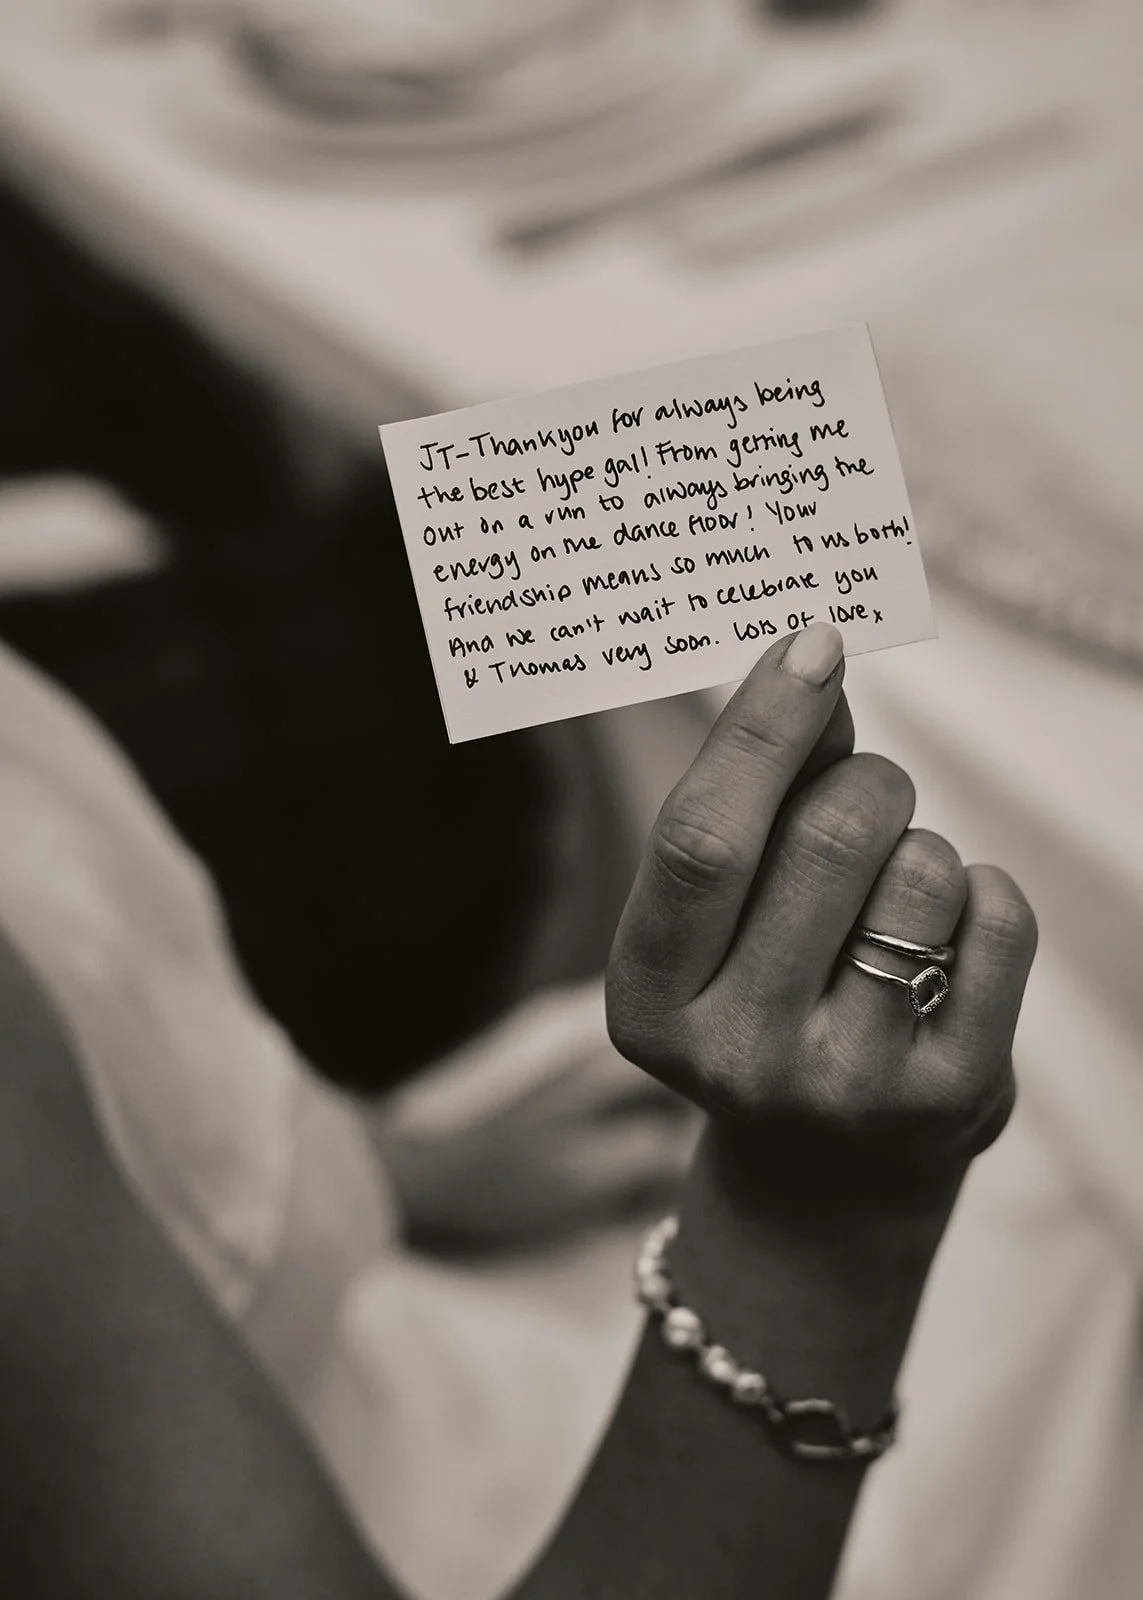 JT-Thankyou for always being
the best hype gal! From getting me
out on a run to always bringing the
energy on the dance floor! Your
friendship means so much to us both!
And we can't wait to celebrate you
& Thomas very soon. Lots of love x